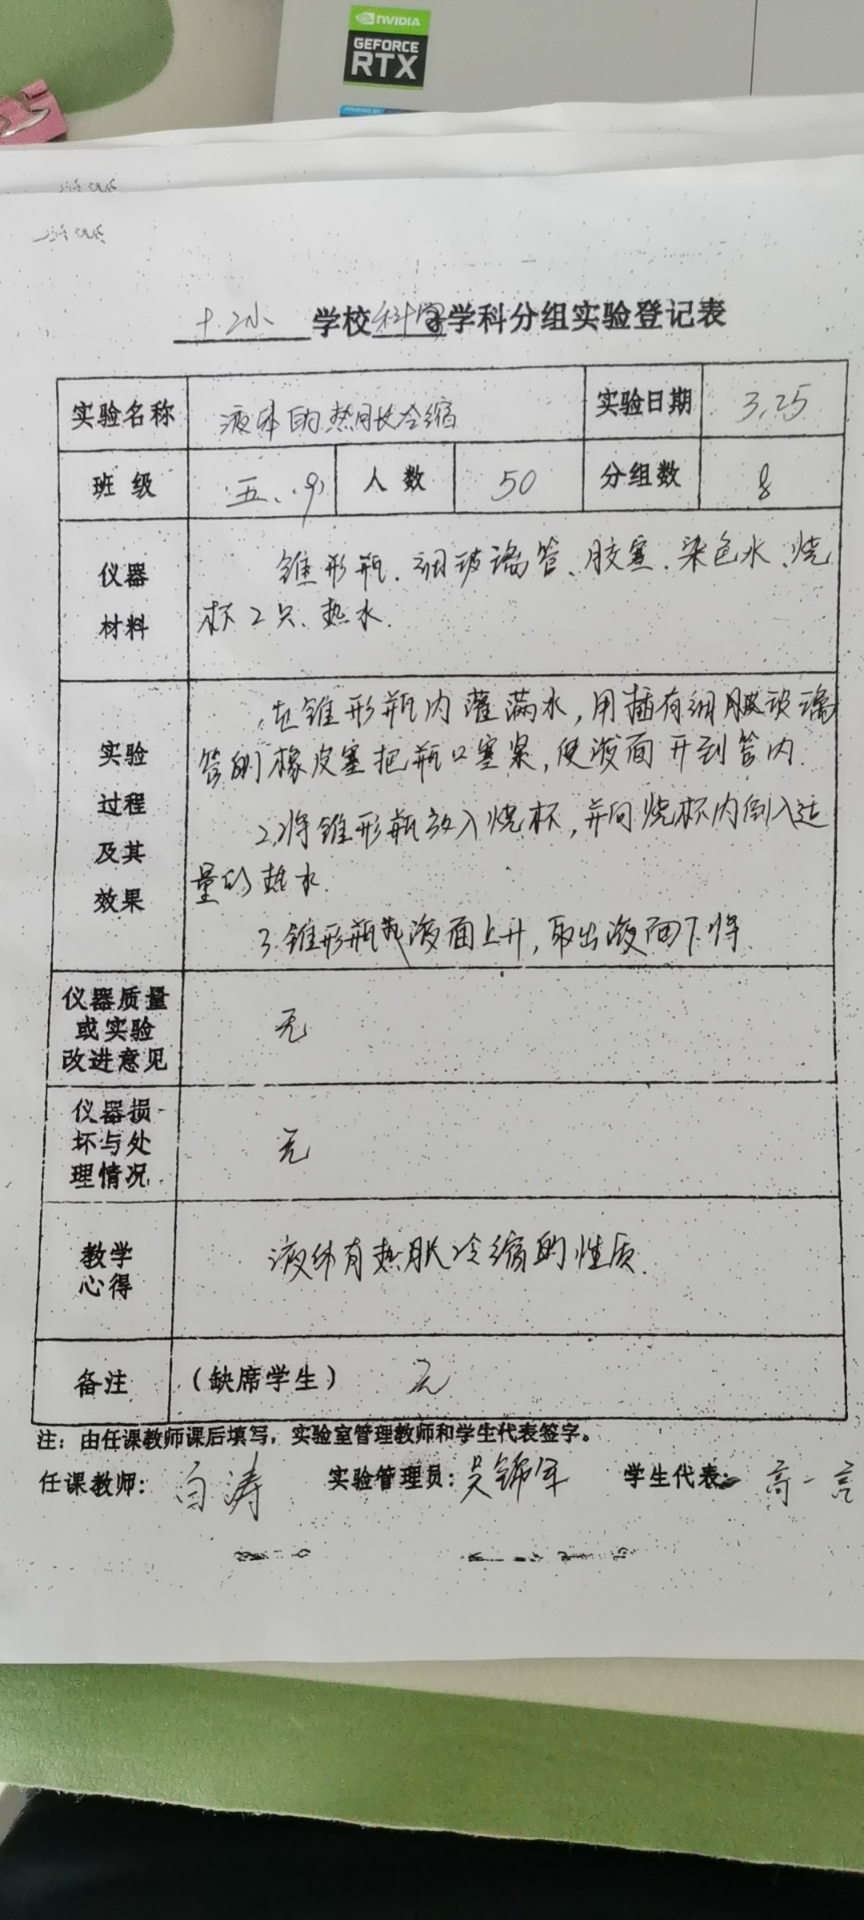 NVIDIA
GEFORCE
RTX
十二小 学校科学学科分组实验登记表
实验名称 液体的热胀冷缩 实验日期 3.25
班级 五.9 人数 50 分组数 8
仪器
材料
锥形瓶、细玻璃管、胶塞、染色水、烧
杯2只、热水.
实验
过程
及其
效果
1.在锥形瓶内灌满水,用插有细玻璃
管的橡皮塞把瓶口塞紧,使液面升到管内.
2.将锥形瓶放入烧杯,并向烧杯内倒入适
量的热水.
3.锥形瓶液面上升,取出液面下降.
仪器质量
或实验
改进意见
无
仪器损
坏与处
理情况
无
教学
心得
液体有热胀冷缩的性质.
备注 (缺席学生) 无
注:由任课教师课后填写,实验室管理教师和学生代表签字。
任课教师: 白涛 实验管理员: 吴锦军 学生代表: 高一言